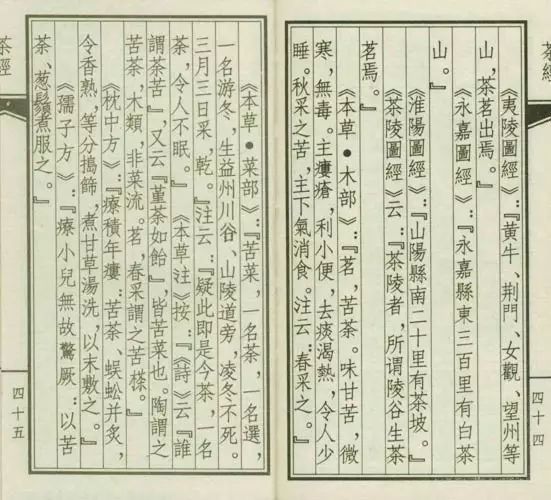 茶經
《夷陵圖經》：『黄牛、荆門、女觀、望州等
山，茶茗出焉。』
《永嘉圖經》：『永嘉縣東三百里有白茶
山。』
《淮陽圖經》：『山陽縣南二十里有茶坡。』
《茶陵圖經》云：『茶陵者，所謂陵谷生茶
茗焉。』
《本草·木部》：『茗，苦茶。味甘苦，微
寒，無毒。主瘻瘡，利小便，去痰渴熱，令人少
睡。秋采之苦，主下氣消食。注云：春采之。』
四十四
《本草·菜部》：『苦菜，一名茶，一名選，
一名游冬，生益州川谷、山陵道旁，凌冬不死。
三月三日采，乾。』注云：『疑此即是今茶，一名
茶，令人不眠。』《本草注》按：『《詩》云『誰
謂茶苦』，又云『堇茶如飴』，皆苦菜也。陶謂之
苦茶，木類，非菜流。茗，春采謂之苦𣗪。』
《枕中方》：『療積年瘻：苦茶、蜈蚣并炙，
令香熟，等分搗篩，煮甘草湯洗，以末敷之。』
《孺子方》：『療小兒無故驚厥：以苦
茶、葱鬚煮服之。』
茶經
四十五